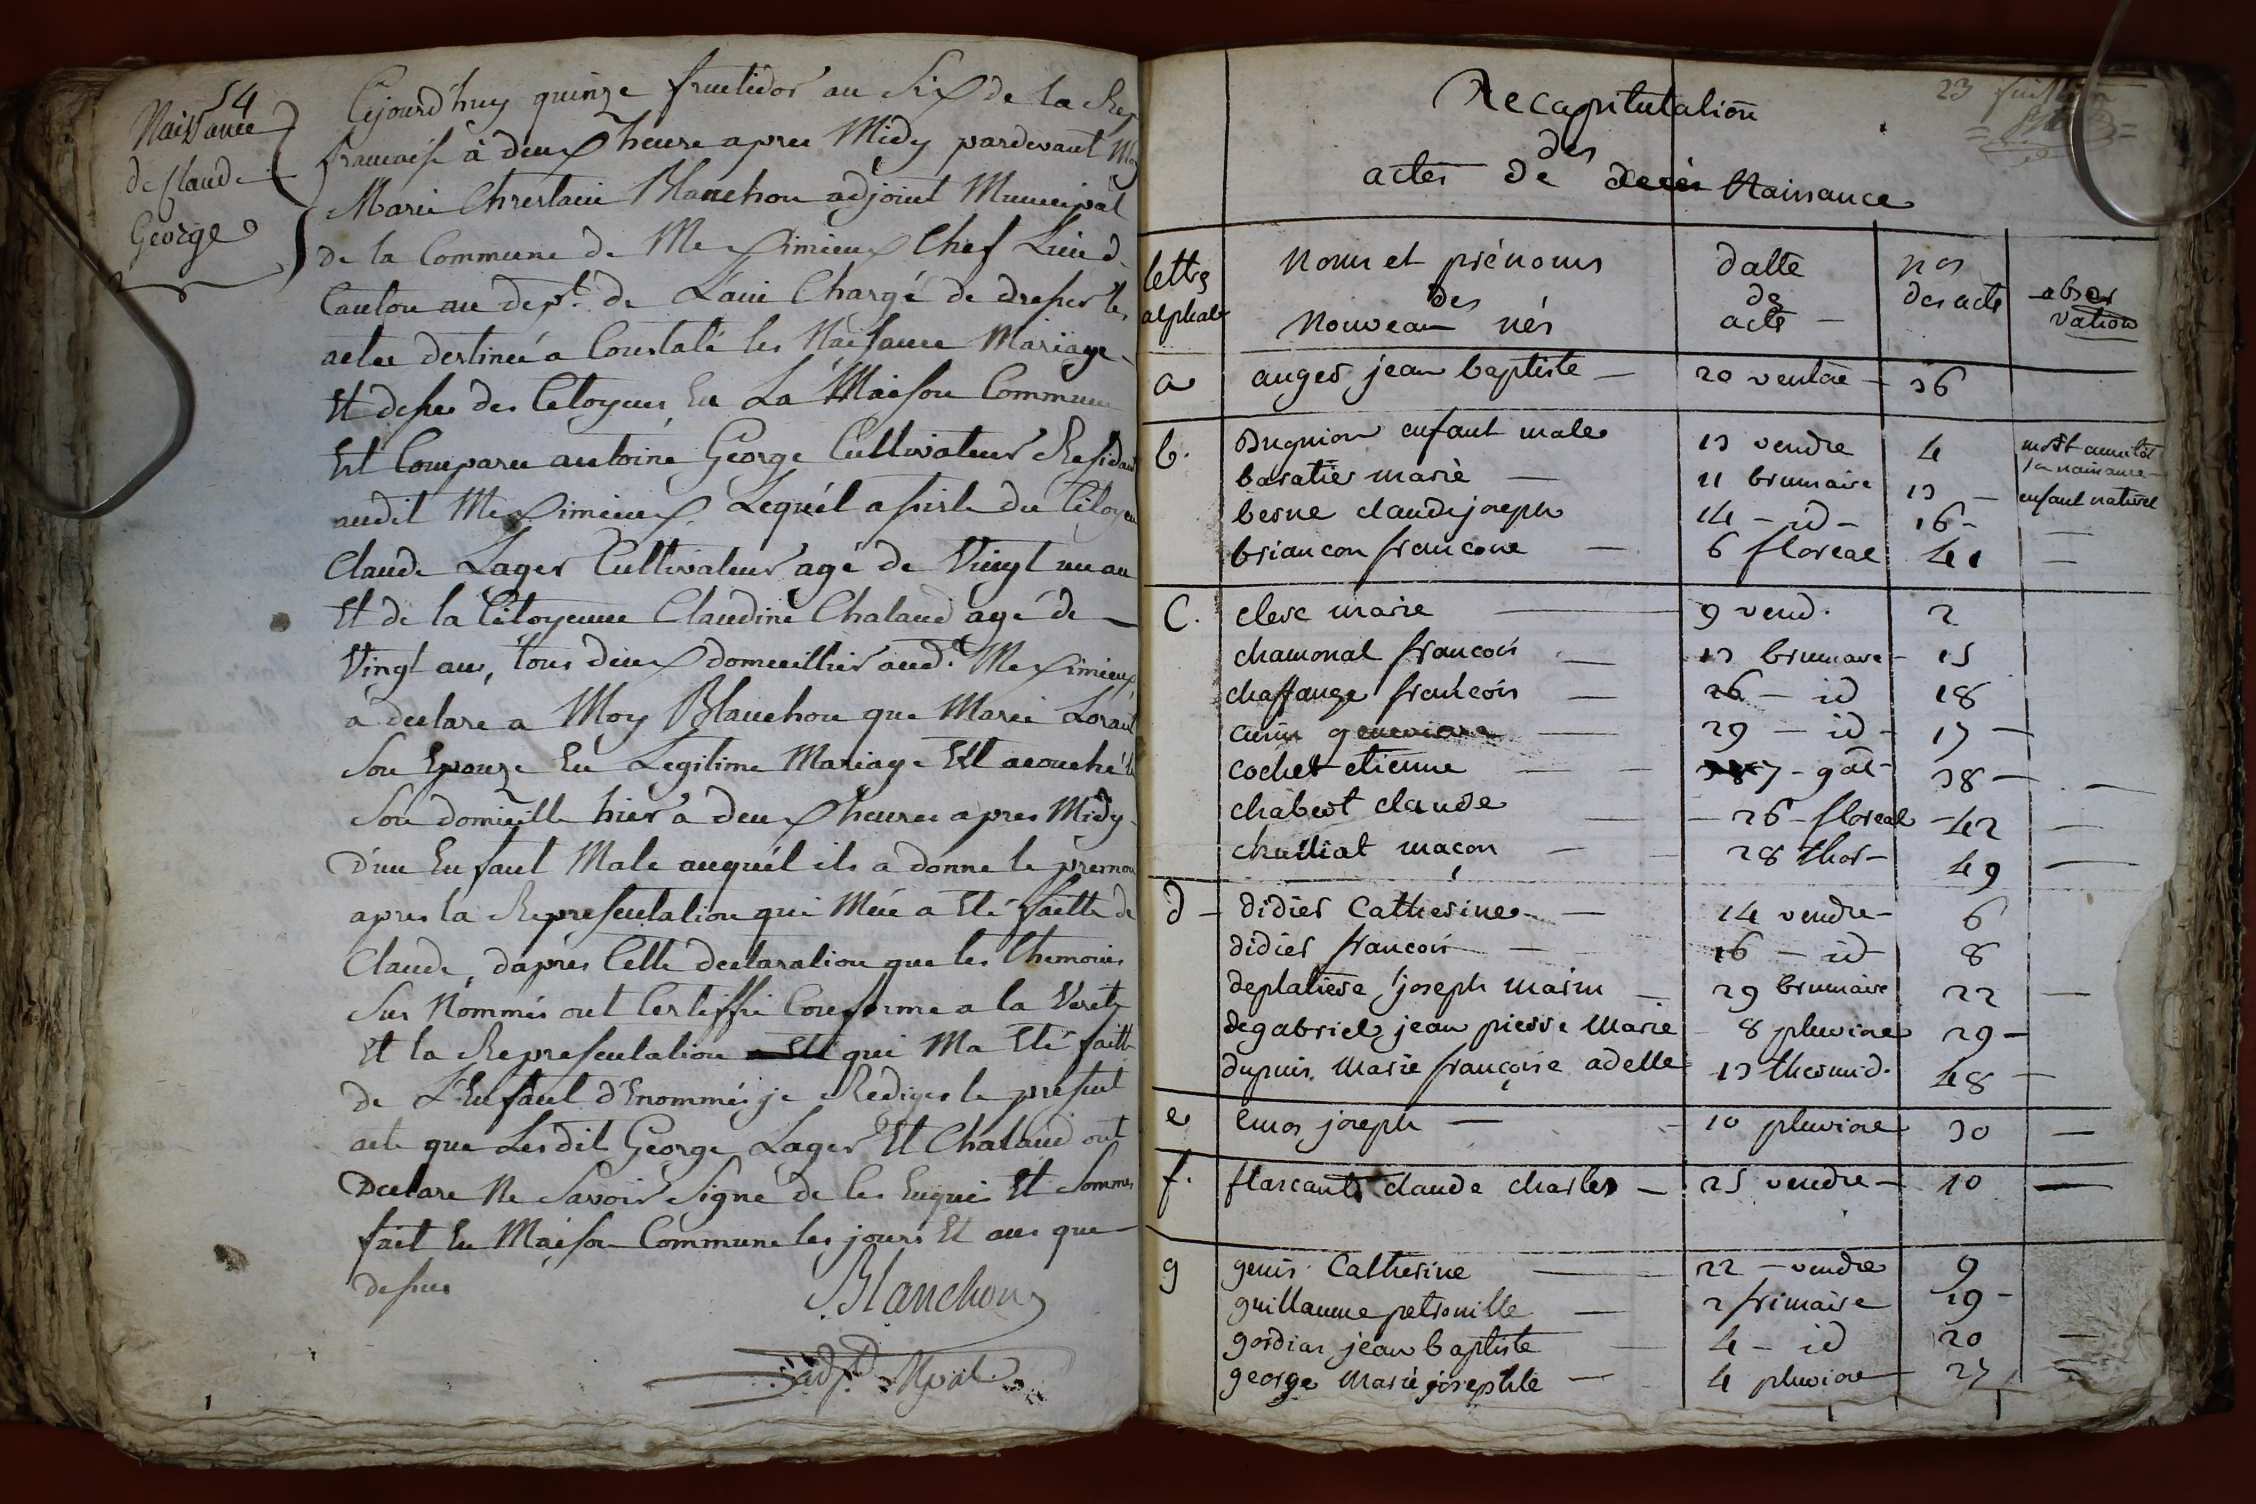 54
Naissance
de Claude
George
Cejourd'huy quinze fructidor an Six de la Rep
francaise à deux heure apres Midy pardevant Moy
Marie Chrestain Blanchon adjoint Municipal
de la Commune de Meximieux Chef Lieu d
Canton au dept. de Lain Chargé de dresser les
actes destinée a Constaté les Naissance Mariage
Et desses des Citoyens En La Maison Commune
Est Comparu antoine George Cultivateur Residant
audit Meximieux Lequél assisté du Citoyen
Claude Lager Cultivateur agé de Vingt un an
Et de la Citoyenne Claudine Chaland agé de
Vingt ans, tous deux domicillier aud.t Meximieux
a declare a Moy Blanchon que Marie Lorant
Son Epouze En Legitime Mariage Est acouché
Son domicille hier a deux heures apres Midy
D'un Enfant Male auquél ils a donne le prenom
apres la Representation qui Mén a Eté faitte de
Claude, dapres Cette declaration que les themoins
Sus Nommés ont Certiffié Conforme a la Verité
Et la Representation a Eté qui Ma Eté faitte
de L'Enfant d'Enommés je Rediger le present
acte que Lesdit George Lager Et Chaland ont
Declare Ne Savoir Signé de les Enqui Et Sommes
fait En Maison Commune les jours Et ans que
dessus
Blanchon
adj.t Mpal
23 juillet
Recapitulation
des
actes de deces Naissance
lettrs alphab | Noms et prénoms des Nouveau nés | datte de acte | nos des acte | observation
a | auger jean baptiste | 20 ventôse | 36
b. | Dugnion enfant male | 13 vendre | 4 | mort aussitot sa naissance
baratier marie | 11 brumaire | 13 | enfant naturel
berne claude joseph | 14 - id - | 16
briancon francoise | 6 floreal | 41
C. | clerc marie | 9 vend. | 2
chamonal francois | 13 brumaire | 15
chaffange francois | 26 - id | 18
curin genevieve | 29 - id | 17
cochet etienne | 7 - gal | 38
chabert claude | 26 - floreal | 42
chailiat macon | 28 thor | 49
d | didier Catherine | 14 vendre | 6
didier francois | 16 - id | 8
deplatiere joseph marin | 29 brumaire | 22
degabriel jean pierre Marie | 8 pluviose | 29
dupuis Marie françoise adelle | 13 thermid. | 48
e | emos joseph | 10 pluviose | 30
f. | flarcants claude charles | 25 vendre | 10
g | genis Catherine | 22 - vendre | 9
guillaume petronille | 2 frimaire | 19
gordian jean baptiste | 4 - id | 20
george Marie josephte | 4 pluviose | 27